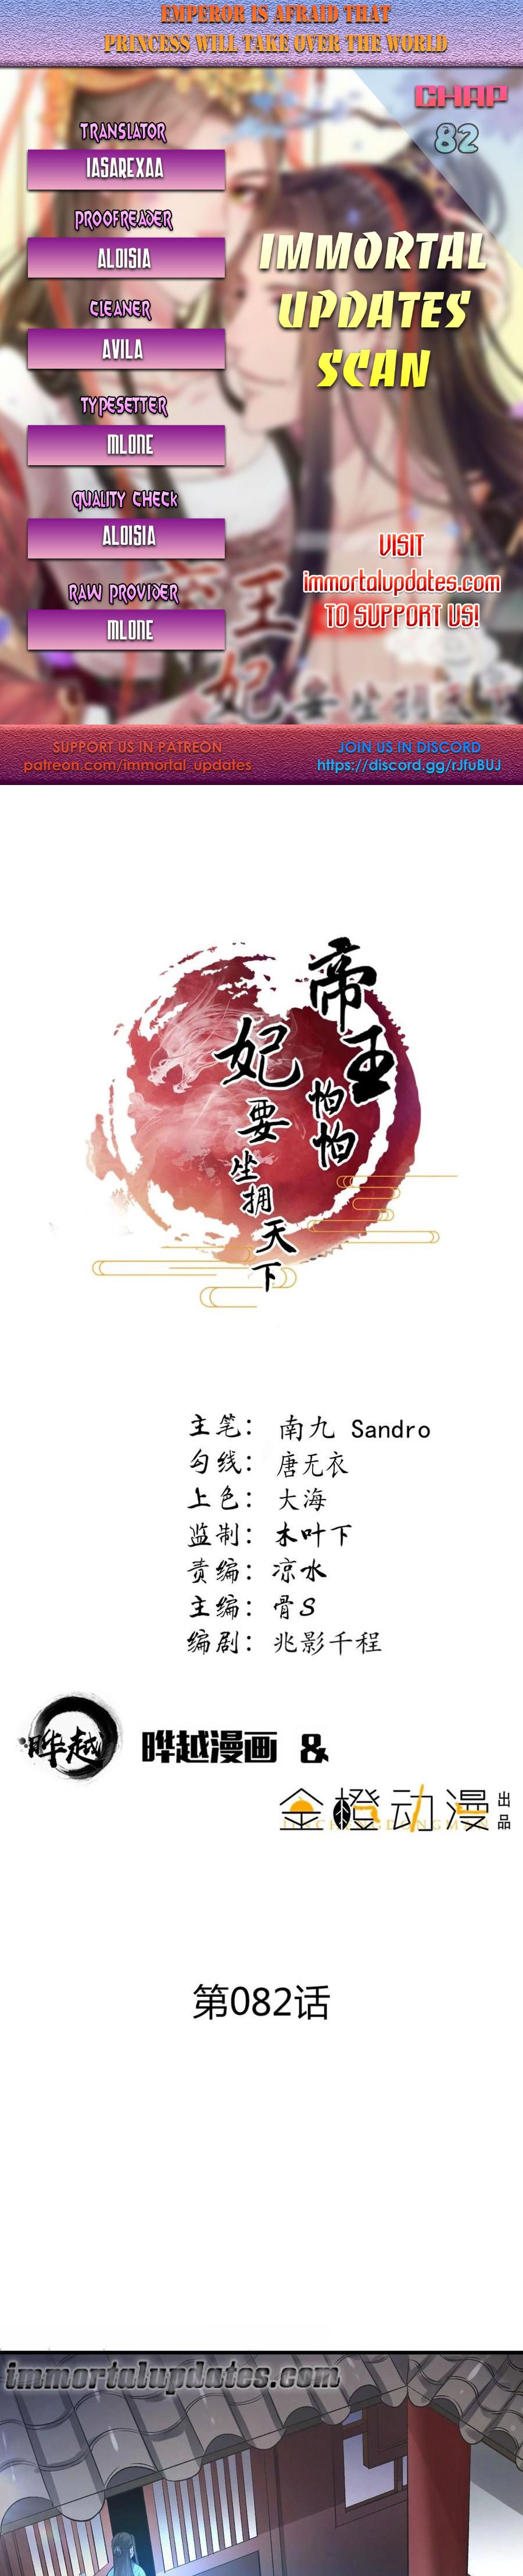 EMPEROR IS AFRAID THAT
PRINCESS WILL TAKE OVER THE WORLD
CHAP
82
TRANSLATOR
IASAREXAA
PROOFREADER
ALOISIA
CLEANER
AVILA
TYPESETTER
MLONE
QUALITY CHECK
ALOISIA
RAW PROVIDER
MLONE
IMMORTAL
UPDATES
SCAN
VISIT
immortalupdates.com
TO SUPPORT US!
SUPPORT US IN PATREON
patreon.com/immortal_updates
JOIN US IN DISCORD
https://discord.gg/rJfuBUJ
帝王怕怕
妃要坐拥天下
主笔: 南九 Sandro
勾线: 唐无衣
上色: 大海
监制: 木叶下
责编: 凉水
主编: 骨S
编剧: 兆影千程
晔越
晔越漫画 &
金橙动漫 出品
第082话
immortalupdates.com